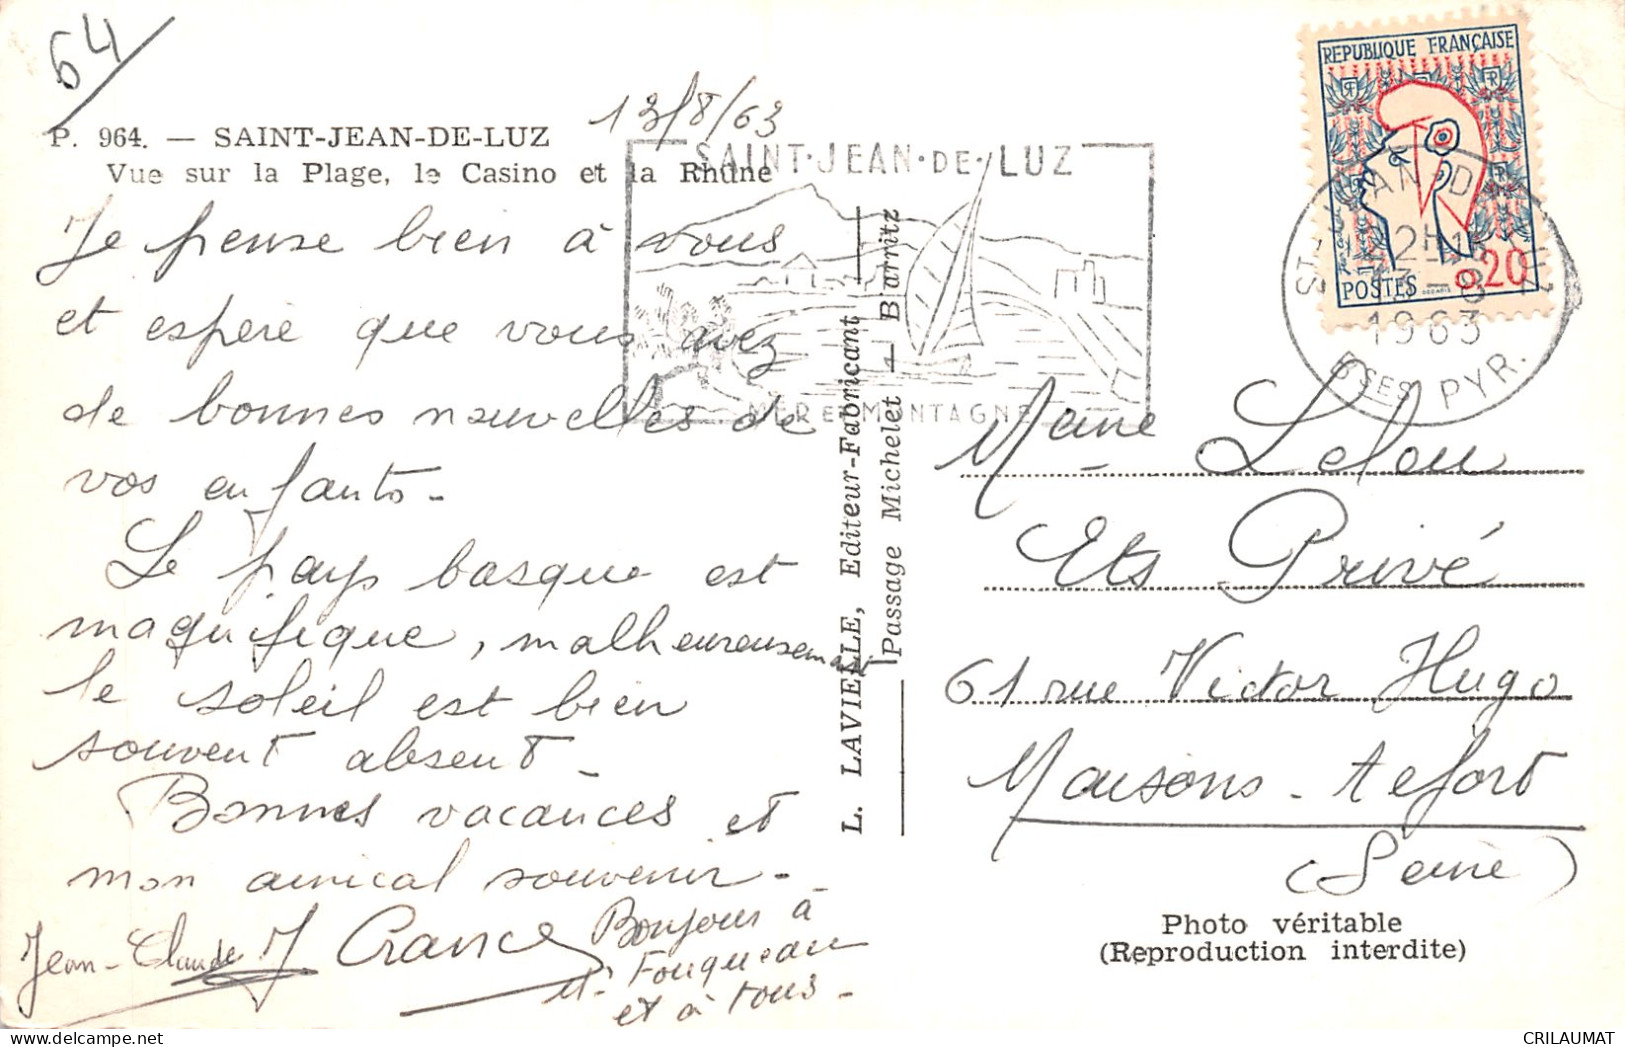 64
P. 964. — SAINT-JEAN-DE-LUZ
Vue sur la Plage, le Casino et la Rhune
13/8/63
Je pense bien à vous
et espère que vous avez
de bonnes nouvelles de
vos enfants-
Le pays basque est
magnifique, malheureusement
le soleil est bien
souvent absent-
Bonnes vacances et
mon amical souvenir--
Jean-Claude
Bonjour à
M. Fouqueau
et à tous-
SAINT·JEAN·DE·LUZ
MER ET MONTAGNE
L. LAVIELLE, Editeur-Fabricant
Passage Michelet — Biarritz
REPUBLIQUE FRANÇAISE
POSTES 0,20
1963
BSES PYR.
Ets Privé
61 rue Victor Hugo
Maisons-Alfort
(Seine)
Photo véritable
(Reproduction interdite)
CRILAUMAT